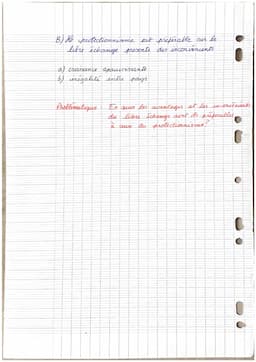 B) Le protectionnisme est préférable car le
libre échange présente des inconvénients
a) croissance appauvrissante
b) inégalité entre pays
Problématique : En quoi les avantages et les inconvénients
du libre échange sont ils préférables
à ceux du protectionnisme ?